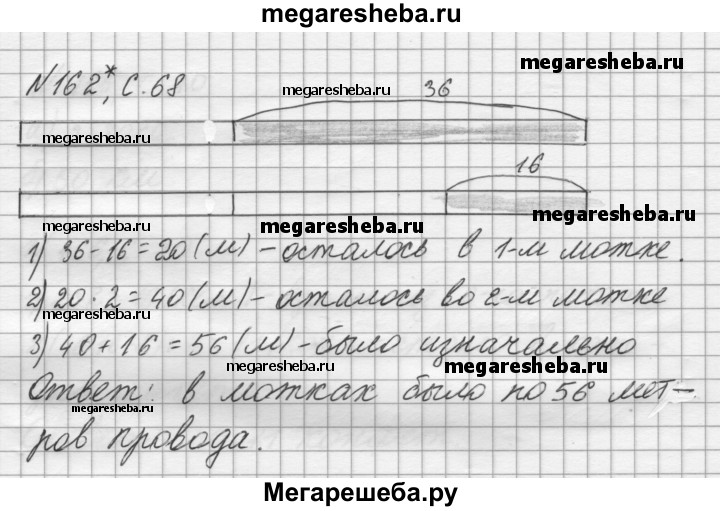 megaresheba.ru
megaresheba.ru
№162*, с.68
megaresheba.ru
36
megaresheba.ru
megaresheba.ru
16
megaresheba.ru
megaresheba.ru
1) 36-16=20(м)-осталось в 1-м мотке.
2) 20·2=40(м)-осталось во 2-м мотке
megaresheba.ru
megaresheba.ru
3) 40+16=56(м)-было изначально
megaresheba.ru
megaresheba.ru
Ответ: в мотках было по 56 мет-
megaresheba.ru
ров провода.
Мегарешеба.ру